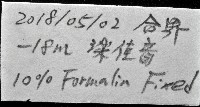 2018/05/02 合界
-18m 球佳奇
10% Formalin Fixed